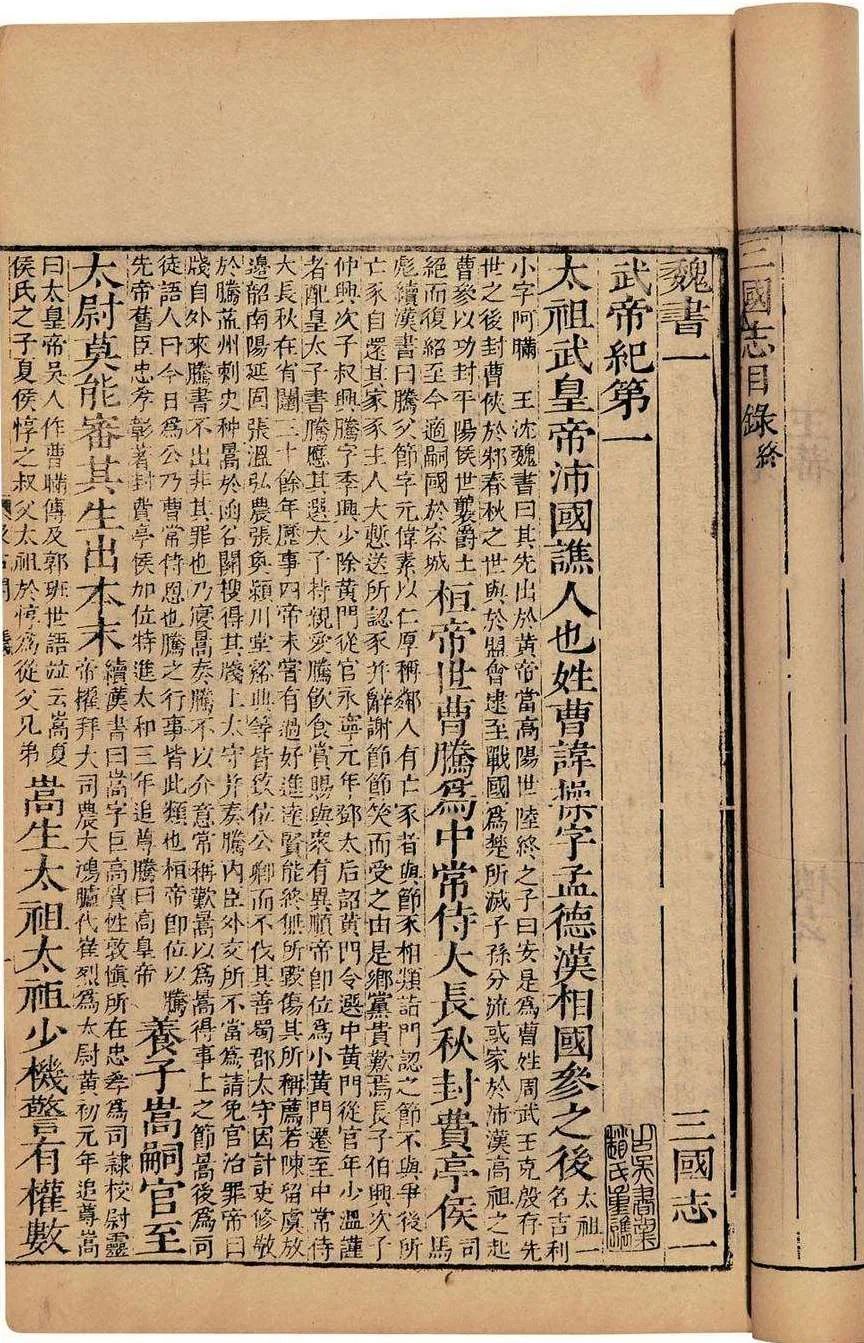 三國志目錄終
魏書一
三國志一
武帝紀第一
太祖武皇帝沛國譙人也姓曹諱操字孟德漢相國參之後
太祖一
名吉利
小字阿瞞 王沈魏書曰其先出於黃帝當高陽世陸終之子曰安是爲曹姓周武王克殷存先
世之後封曹俠於邾春秋之世與於盟會逮至戰國爲楚所滅子孫分流或家於沛漢高祖之起
曹參以功封平陽侯世襲爵土
絕而復紹至今適嗣國於容城
桓帝世曹騰爲中常侍大長秋封費亭侯
司
馬
彪續漢書曰騰父節字元偉素以仁厚稱鄰人有亡豕者與節豕相類詣門認之節不與爭後所
亡豕自還其家豕主人大慙送所認豕并辭謝節節笑而受之由是鄉黨貴歎焉長子伯興次子
仲興次子叔興騰字季興少除黃門從官永寧元年鄧太后詔黃門令選中黃門從官年少溫謹
者配皇太子書騰應其選太子特親愛騰飲食賞賜與衆有異順帝卽位爲小黃門遷至中常侍
大長秋在省闥三十餘年歷事四帝未嘗有過好進達賢能終無所毀傷其所稱薦若陳留虞放
邊韶南陽延固張溫弘農張奐潁川堂谿典等皆致位公卿而不伐其善蜀郡太守因計吏修敬
於騰益州刺史种暠於函谷關搜得其牋上太守并奏騰內臣外交所不當爲請免官治罪帝曰
牋自外來騰書不出非其罪也乃寢暠奏騰不以介意常稱歎暠以爲暠得事上之節暠後爲司
徒語人曰今日爲公乃曹常侍恩也騰之行事皆此類也桓帝卽位以騰
先帝舊臣忠孝彰著封費亭侯加位特進太和三年追尊騰曰高皇帝
養子嵩嗣官至
太尉莫能審其生出本末
續漢書曰嵩字巨高質性敦愼所在忠孝爲司隸校尉靈
帝擢拜大司農大鴻臚代崔烈爲太尉黃初元年追尊嵩
曰太皇帝吳人作曹瞞傳及郭班世語竝云嵩夏
侯氏之子夏侯惇之叔父太祖於惇爲從父兄弟
嵩生太祖太祖少機警有權數